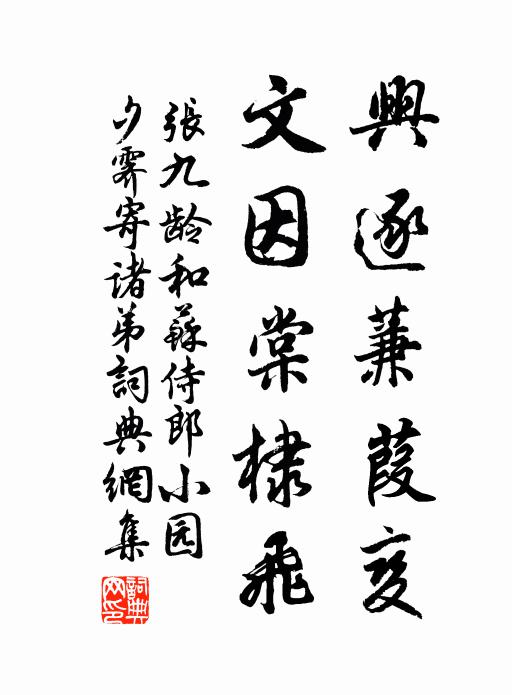 興逐蒹葭变
文因棠棣飛
張九龄和蘇侍郎小园
夕霽寄諸弟詞典網集